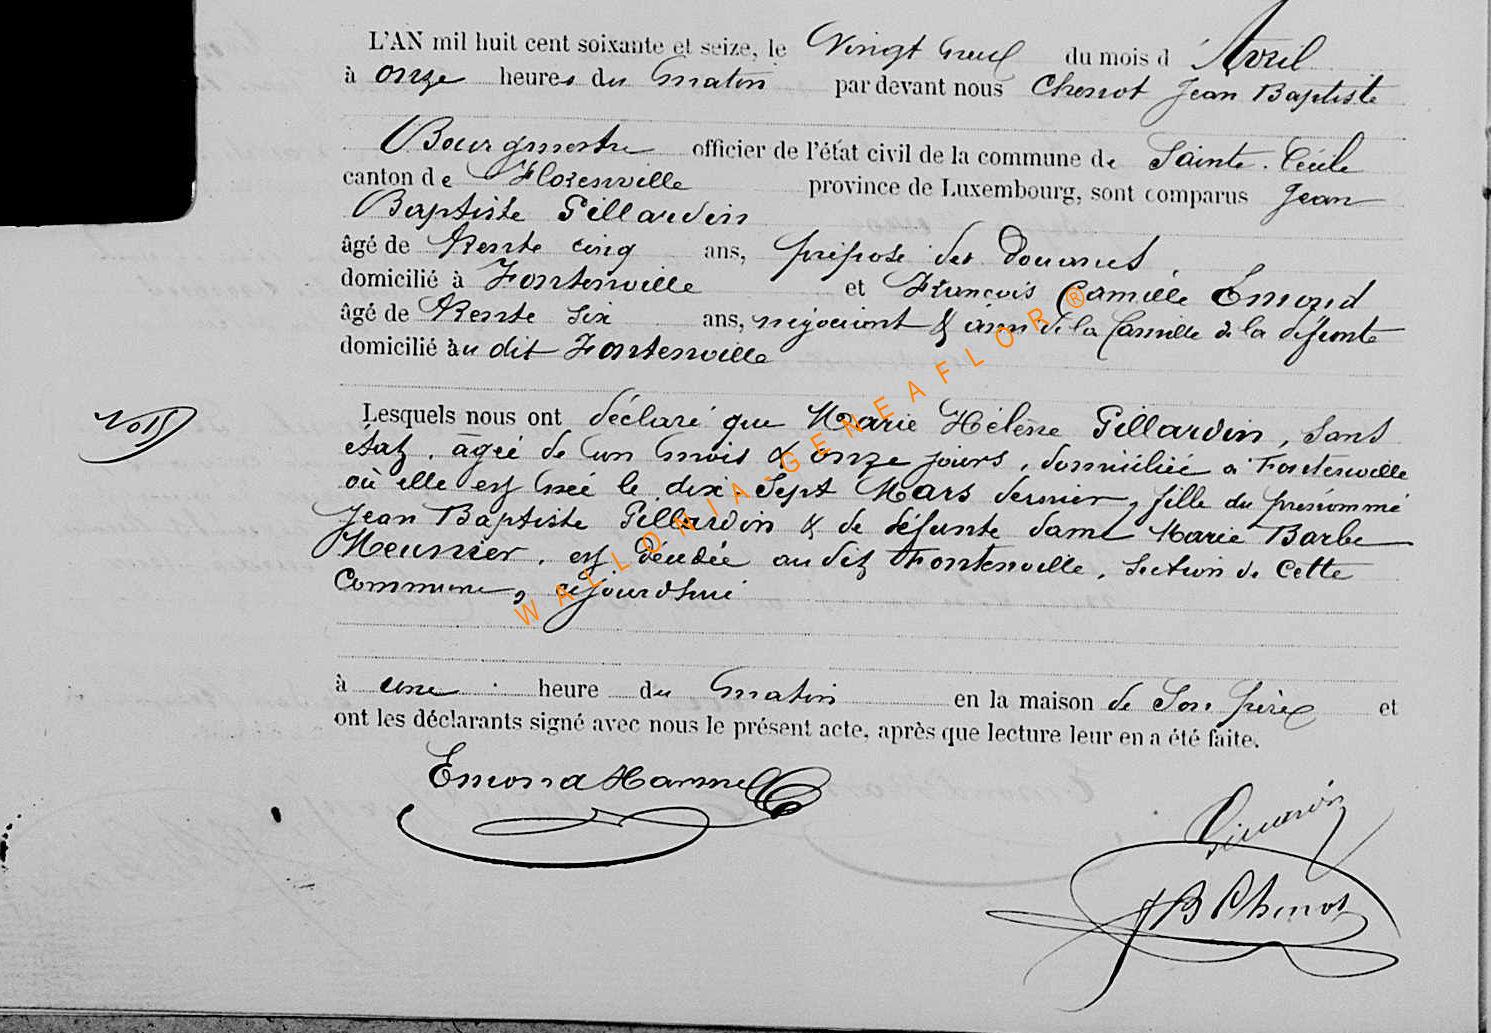 L'AN mil huit cent soixante et seize, le Vingt neuf du mois d'Avril
à onze heures du matin par devant nous Chenot Jean Baptiste
Bourgmestre officier de l'état civil de la commune de Sainte-Cécile
canton de Florenville province de Luxembourg, sont comparus Jean
Baptiste Gillardin
âgé de trente cinq ans, préposé des Douanes
domicilié à Fontenoille et François Camille Emond
âgé de trente six ans, négociant & ami de la famille de la défunte
domicilié au dit Fontenoille
Lesquels nous ont déclaré que Marie Hélène Gillardin, sans
état, âgée de un mois & onze jours, domiciliée à Fontenoille
où elle est née le dix-sept Mars dernier, fille du prénommé
Jean Baptiste Gillardin & de défunte dame Marie Barbe
Meunier, est décédée au dit Fontenoille, section de cette
Commune, cejourd'hui
à une heure du matin en la maison de son père et
ont les déclarants signé avec nous le présent acte, après que lecture leur en a été faite.
Emond Harmel
Gillardin
JB Chenot
WALLONIA-GENEAFLOR®